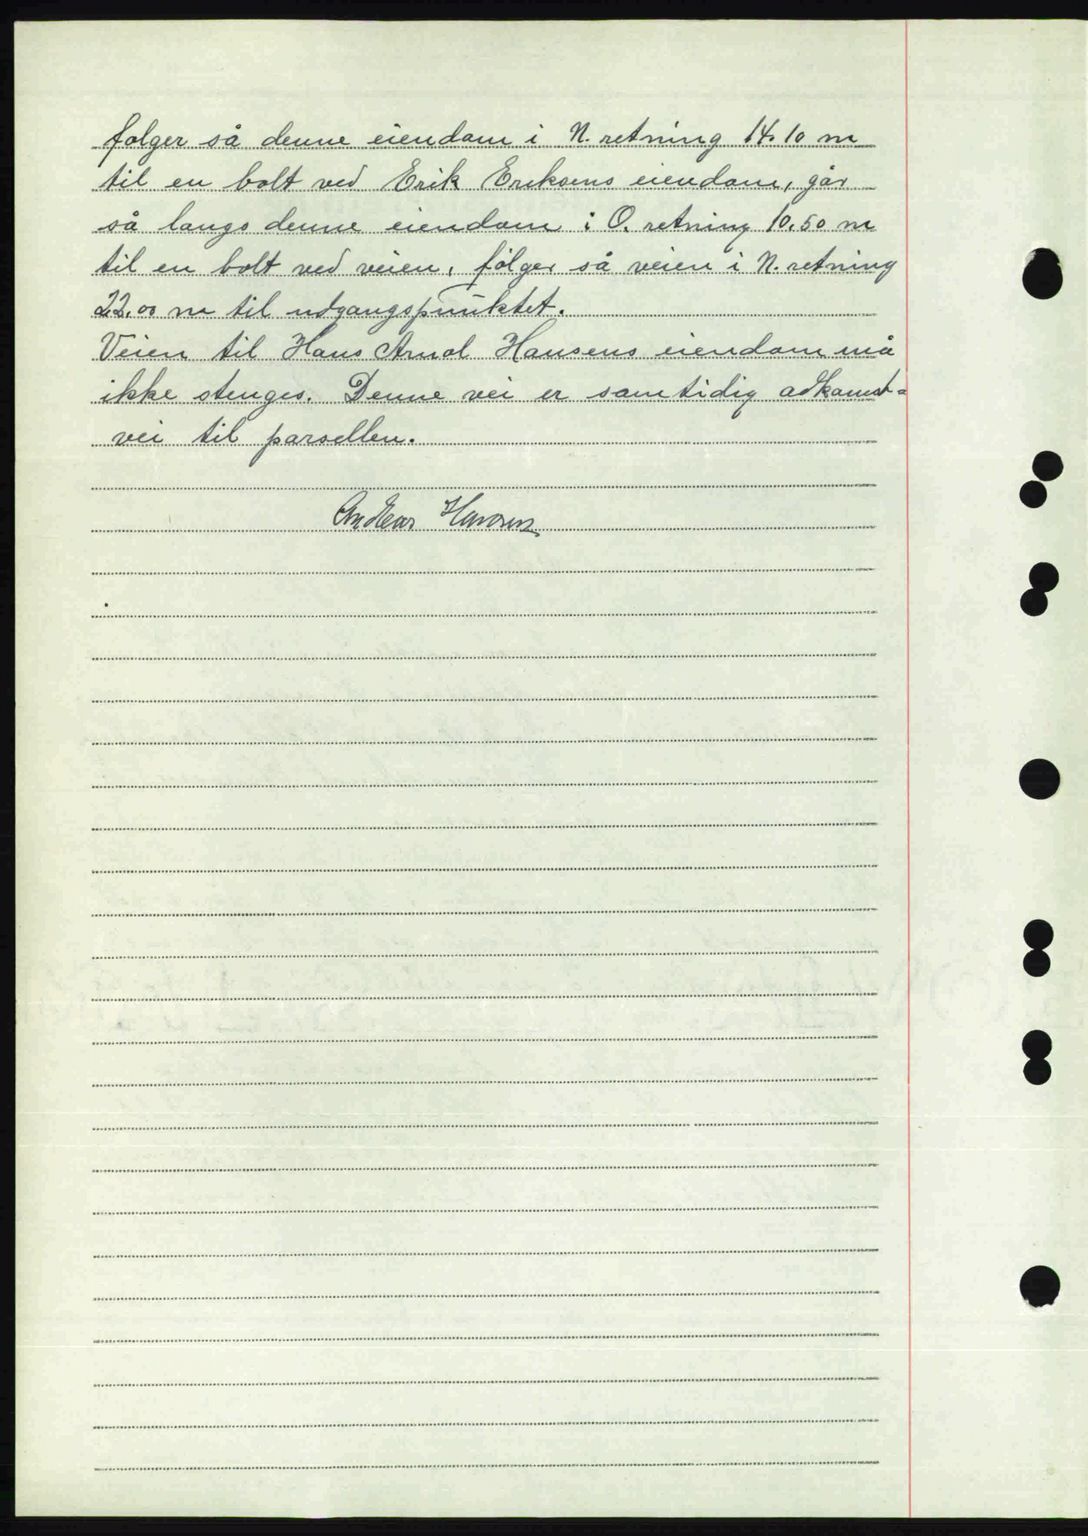 følger så denne eiendom i N. retning 14.10 m
til en bolt ved Erik Eriksens eiendom, går
så langs denne eiendom i O. retning 10.50 m
til en bolt ved veien, følger så veien i N. retning
22.00 m til udgangspunktet.
Veien til Hans Arnol Hansens eiendom må
ikke stenges. Denne vei er samtidig adkomst-
vei til parsellen.
Andreas Hansen